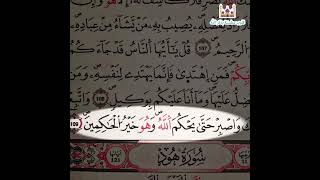 يُصِيبُ بِهِ مَن يَشَاءُ مِنْ عِبَادِهِ
الرَّحِيمُ ١٠٧ قُلْ يَا أَيُّهَا النَّاسُ قَدْ جَاءَكُمُ
فَمَنِ اهْتَدَىٰ فَإِنَّمَا يَهْتَدِي لِنَفْسِهِ وَمَن
عَلَيْهَا وَمَا أَنَا عَلَيْكُم بِوَكِيلٍ ١٠٨
وَاصْبِرْ حَتَّىٰ يَحْكُمَ اللَّهُ وَهُوَ خَيْرُ الْحَاكِمِينَ ١٠٩
سُورَةُ هُودٍ